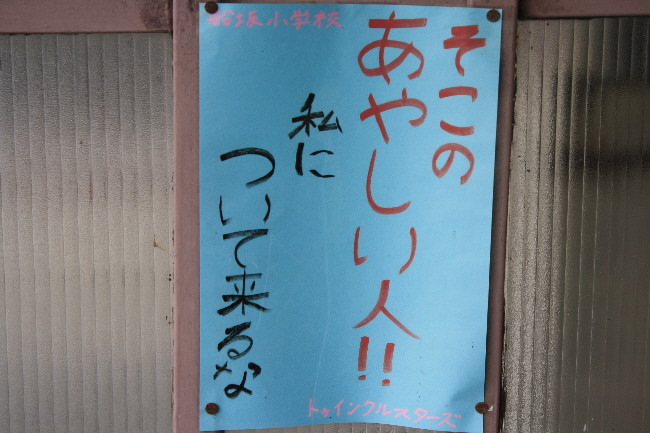 そこの
あやしい人!!
私に
ついて来るな
小学校
トゥインクルスターズ